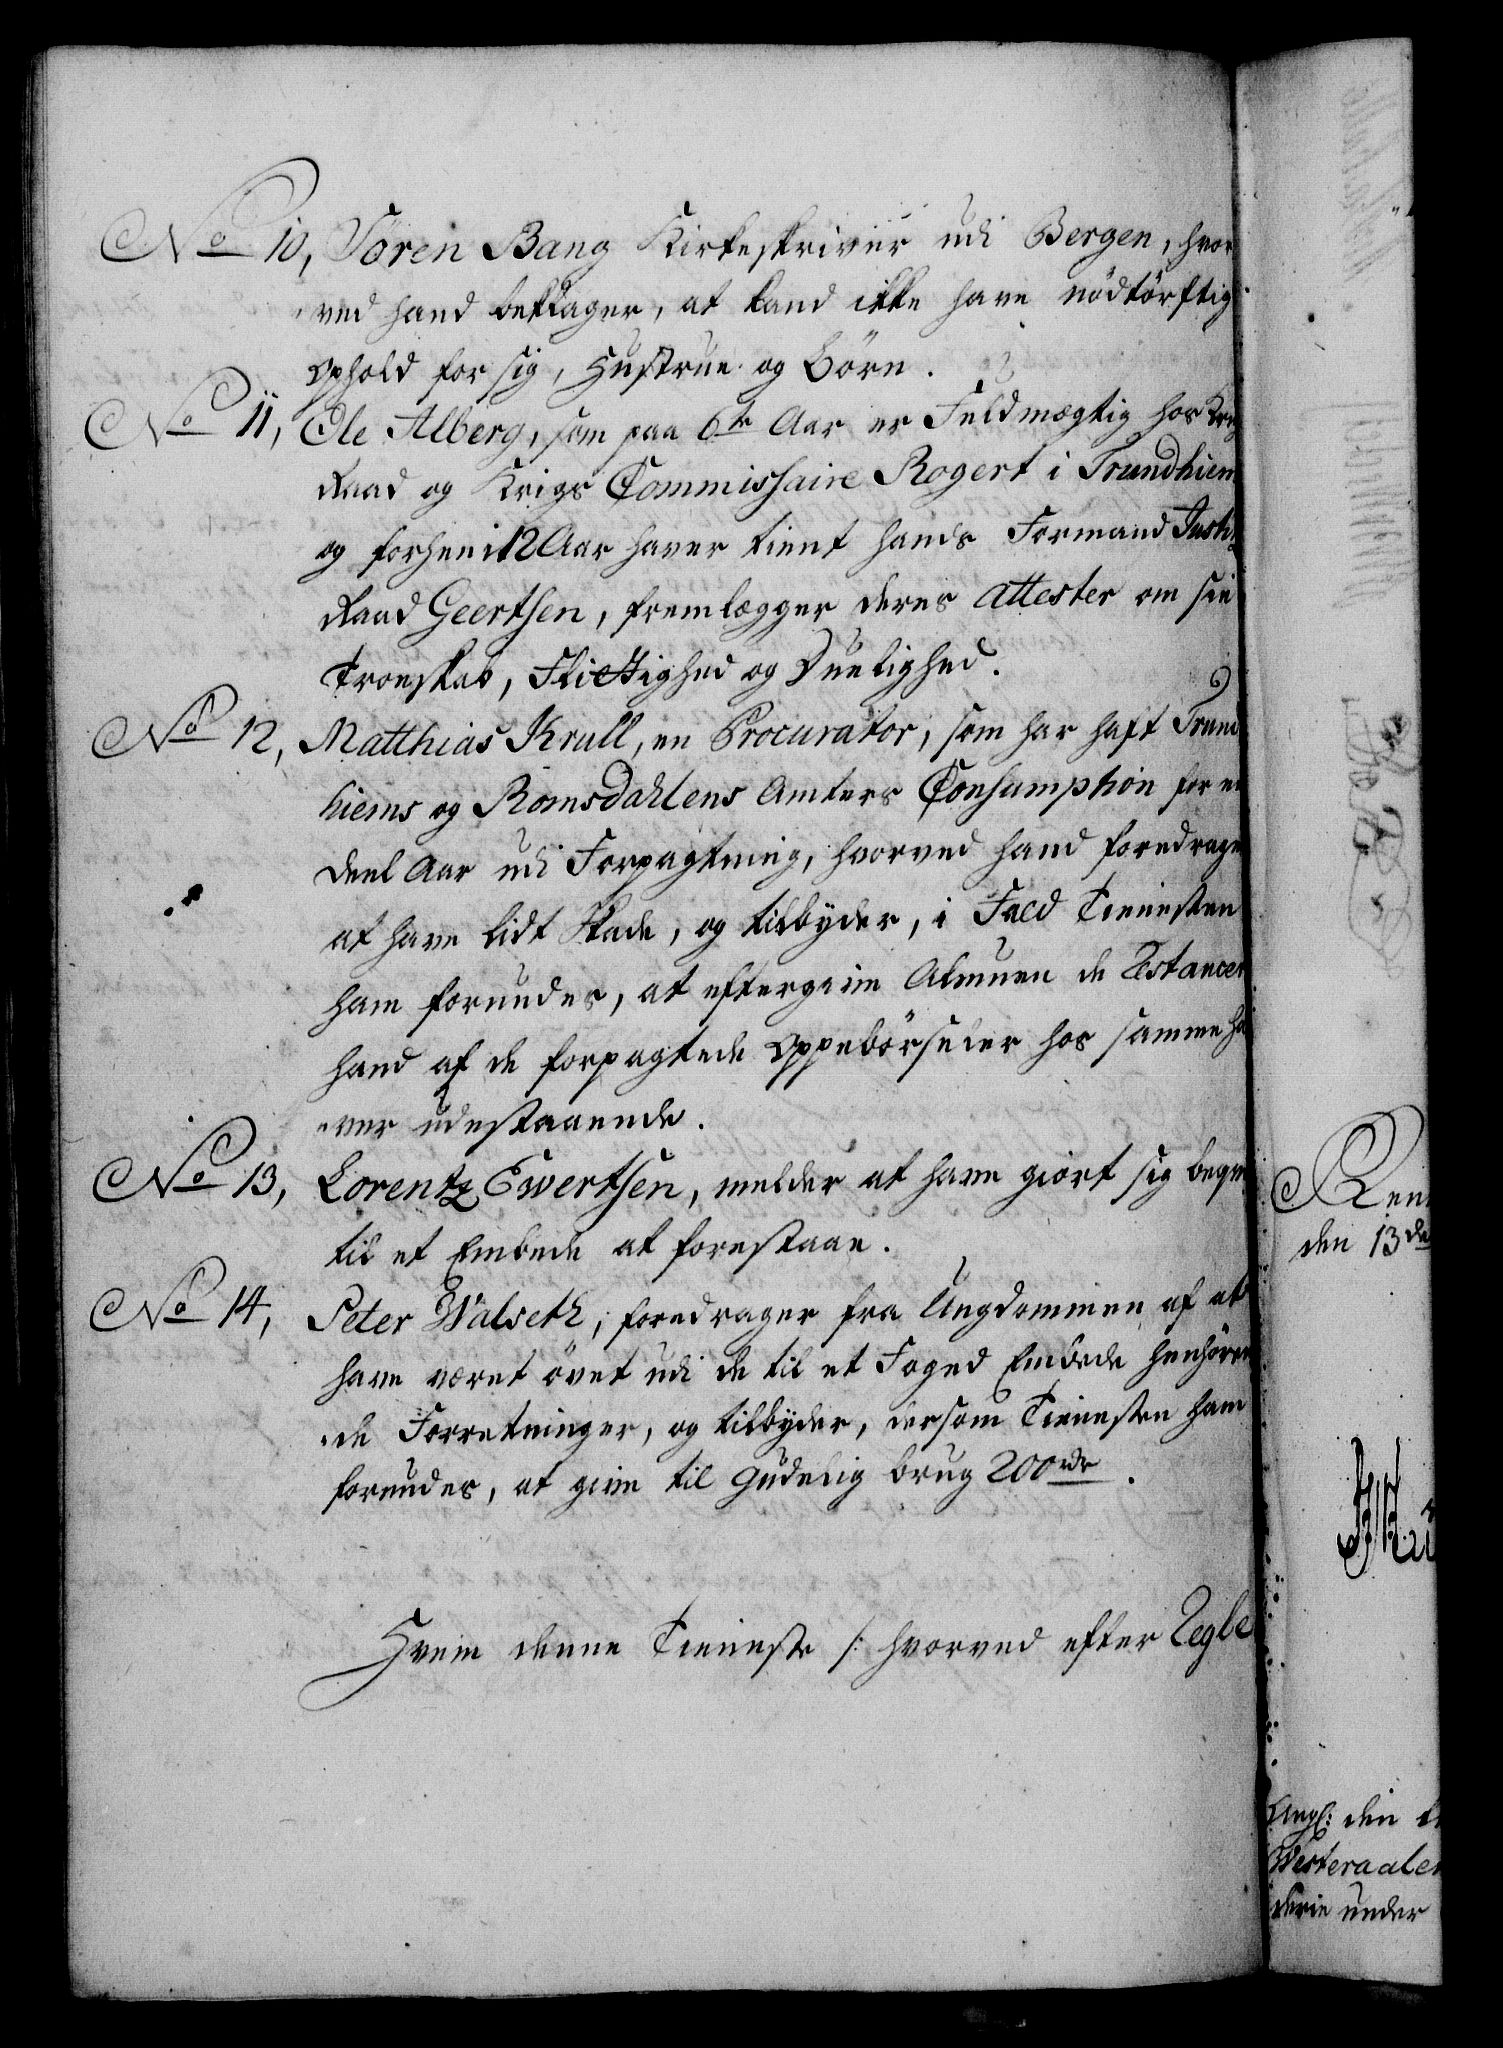 No 10, Sören Bang Kirkeskriver udi Bergen, hvor
ved hand beklager, at kand ikke have nödtörftig
Ophold for sig, Hustrue og Börn.
No 11, Ole Alberg, som paa 6te Aar er Fuldmægtig hos Krigs
Raad og Krigs Commissaire Rogert i Trundhiem
og forhen i 12 Aar haver tient hands Formand Justitz
Raad Geertsen, fremlægger deres Attester om sin
Troeskab, Flittighed og Duelighed.
No 12, Matthias Krull, en Procurator, som har haft Trund
hiems og Romsdahlens Amters Consumption for en
deel Aar udi Forpagtning, hvorved hand foredrager
at have lidt Skade, og tilbyder, i Fald Tienesten
ham forundes, at eftergive Almuen de Restancer
hand af de forpagtede Oppebörseler hos samme ha
ver udestaaende.
No 13, Lorentz Ewertsen, melder at have giort sig beqvem
til et Embede at forestaae.
No 14, Peter Walseth, foredrager fra Ungdommen af at
have været övet udi de til et Foged Embede henhören
de Forretninger, og tilbyder, dersom Tienesten ham
forundes, at give til Gudelig brug 200 rdr.
Hvem denne Tieneste /: hvorved efter Regle
den 13de
den
Westeraalen
under